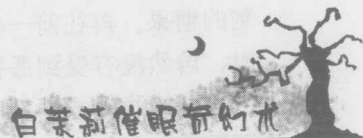 白茉莉催眠奇幻术